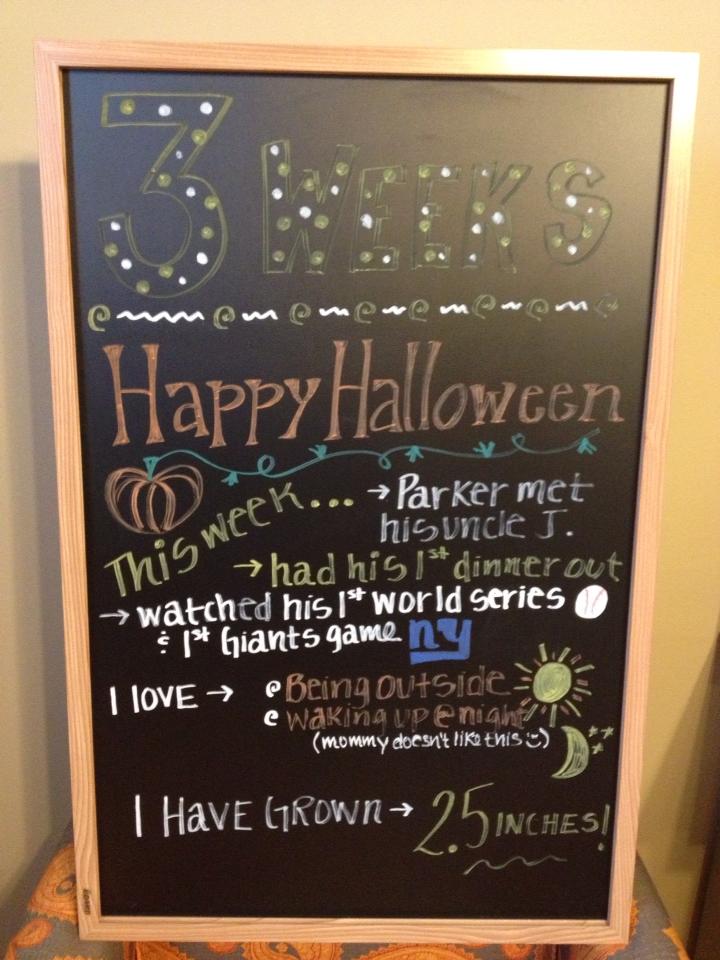 3 WEEKS
Happy Halloween
This week... → Parker met
his uncle J.
→ had his 1st dinner out
→ watched his 1st world series
& 1st Giants game ny
I love → Being outside
waking up @ night
(mommy doesn't like this :))
I HAVE GROWN → 2.5 INCHES!